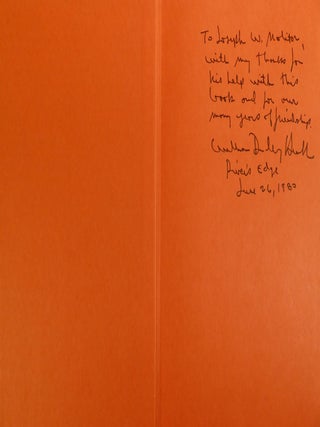 To Joseph W. Molitor,
with my thanks for
his help with this
book and for our
many years of friendship.
William Dudley Hunt
River's Edge
June 26, 1980